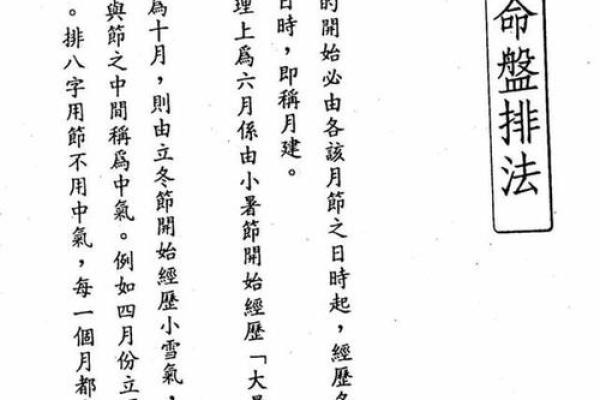 命盤排法
的開始必由各該月節之日時起，經歷各
日時，即稱月建。
理上為六月係由小暑節開始經歷「大暑
為十月，則由立冬節開始經歷小雪氣，
與節之中間稱為中氣。例如四月份立
。排八字用節不用中氣，每一個月都